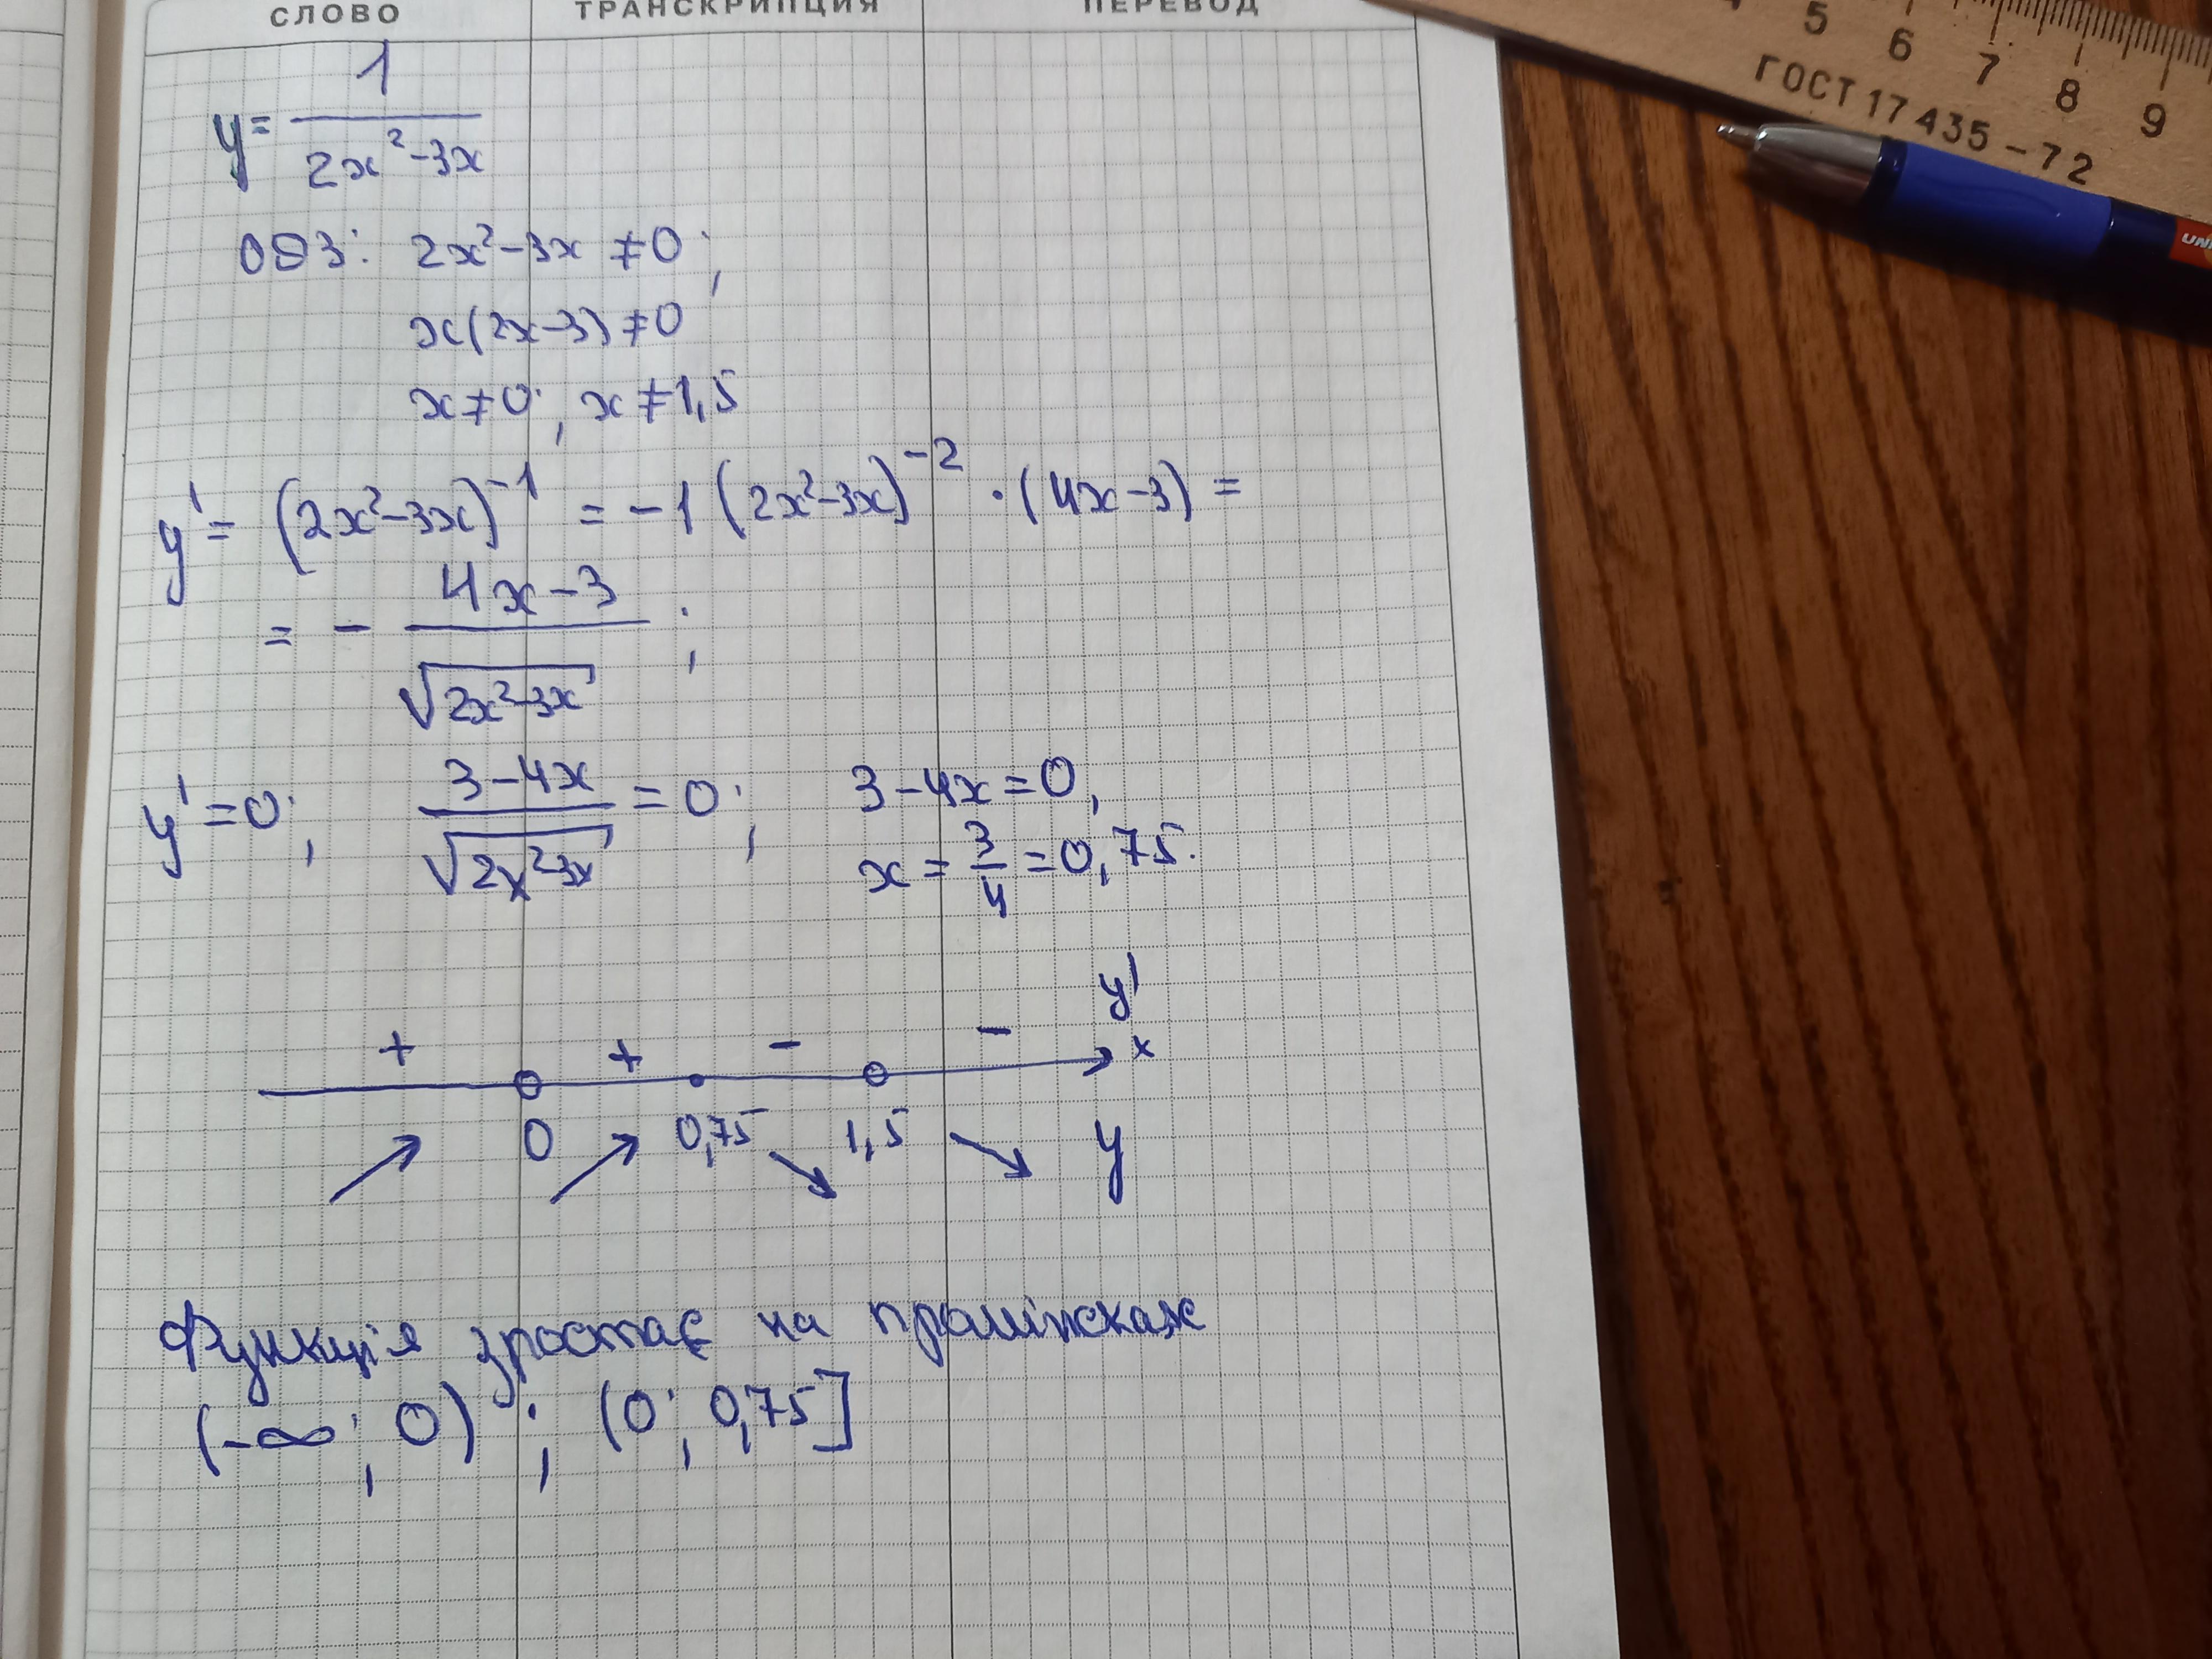 СЛОВО ТРАНСКРИПЦИЯ ПЕРЕВОД
5 6 7 8 9
ГОСТ 17435-72
UNI
y = 1/(2x²-3x)
ОДЗ: 2x²-3x ≠ 0;
x(2x-3) ≠ 0
x ≠ 0; x ≠ 1,5
y' = (2x²-3x)⁻¹ = -1(2x²-3x)⁻² · (4x-3) =
= - (4x-3)/√(2x²-3x);
y' = 0; (3-4x)/√(2x²-3x) = 0; 3-4x = 0,
x = 3/4 = 0,75.
y'
+ + - - x
0 0,75 1,5 y
Функція зростає на проміжках
(-∞; 0); (0; 0,75]